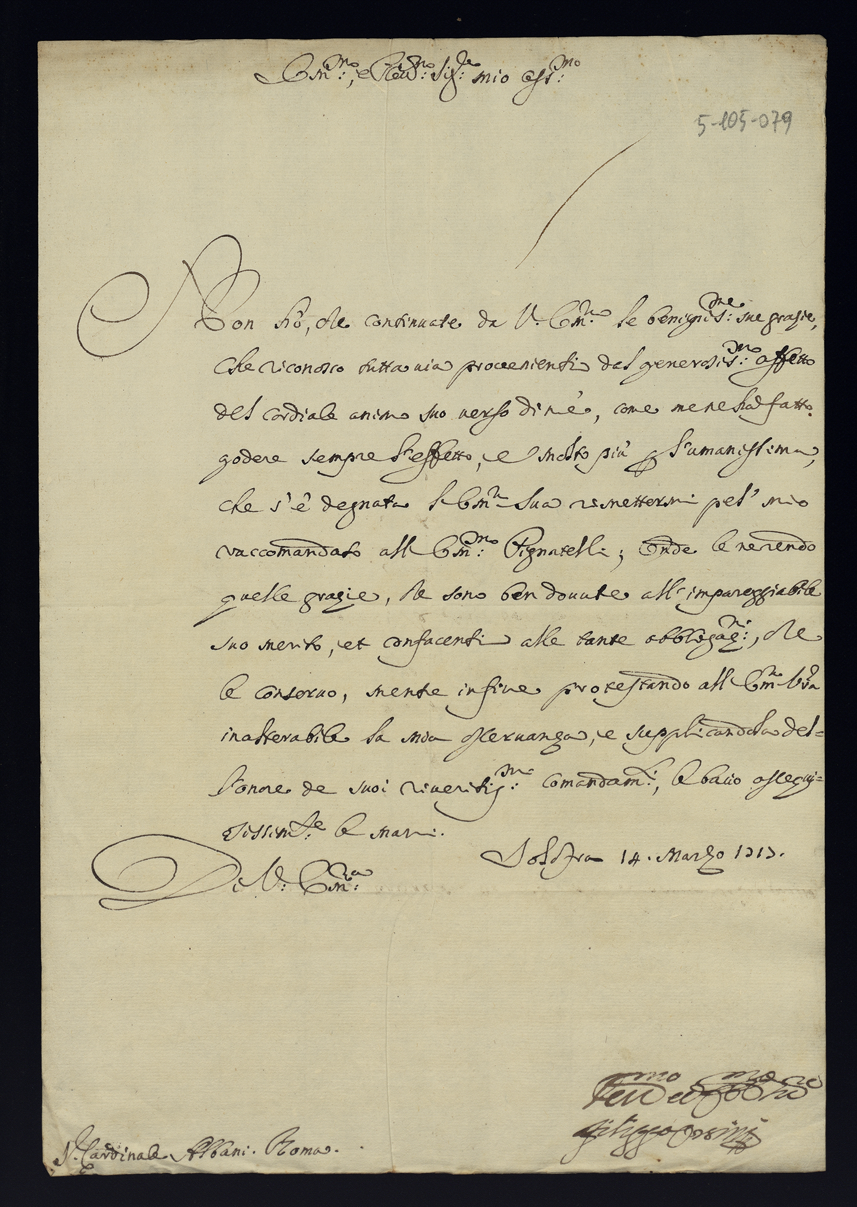 Em:mo, e Reu:mo Sig:re mio oss:mo
5-105-079
Non sò, che continuate da V. Em:za le benignis:me sue grazie,
che riconosco tutta uia prouenienti dal generosis:mo affetto
del cordiale animo suo verso di mè, come me ne hà fatto
godere sempre l'effetto, e molto più l'umanissima,
che s'è degnata l'Em:za Sua rimettermi pel mio
raccomandato all'Em:mo Pignatelli; Onde le rendendo
quelle grazie, che sono ben douute all'impareggiabile
suo merito, et confacenti alle tante obbligaz:ni, che
le conseruo, mentre in fine protestando all'Em:za V:ra
inalterabile la mia osseruanza, e supplicandola del=
l'onore de suoi riueritis:mi comandam:ti, le bacio ossequi=
osissim:te le mani.
Solofra 14. Marzo 1717.
Di V: Em:za
Filippo Orsini
S:r Cardinale Albani. Roma.